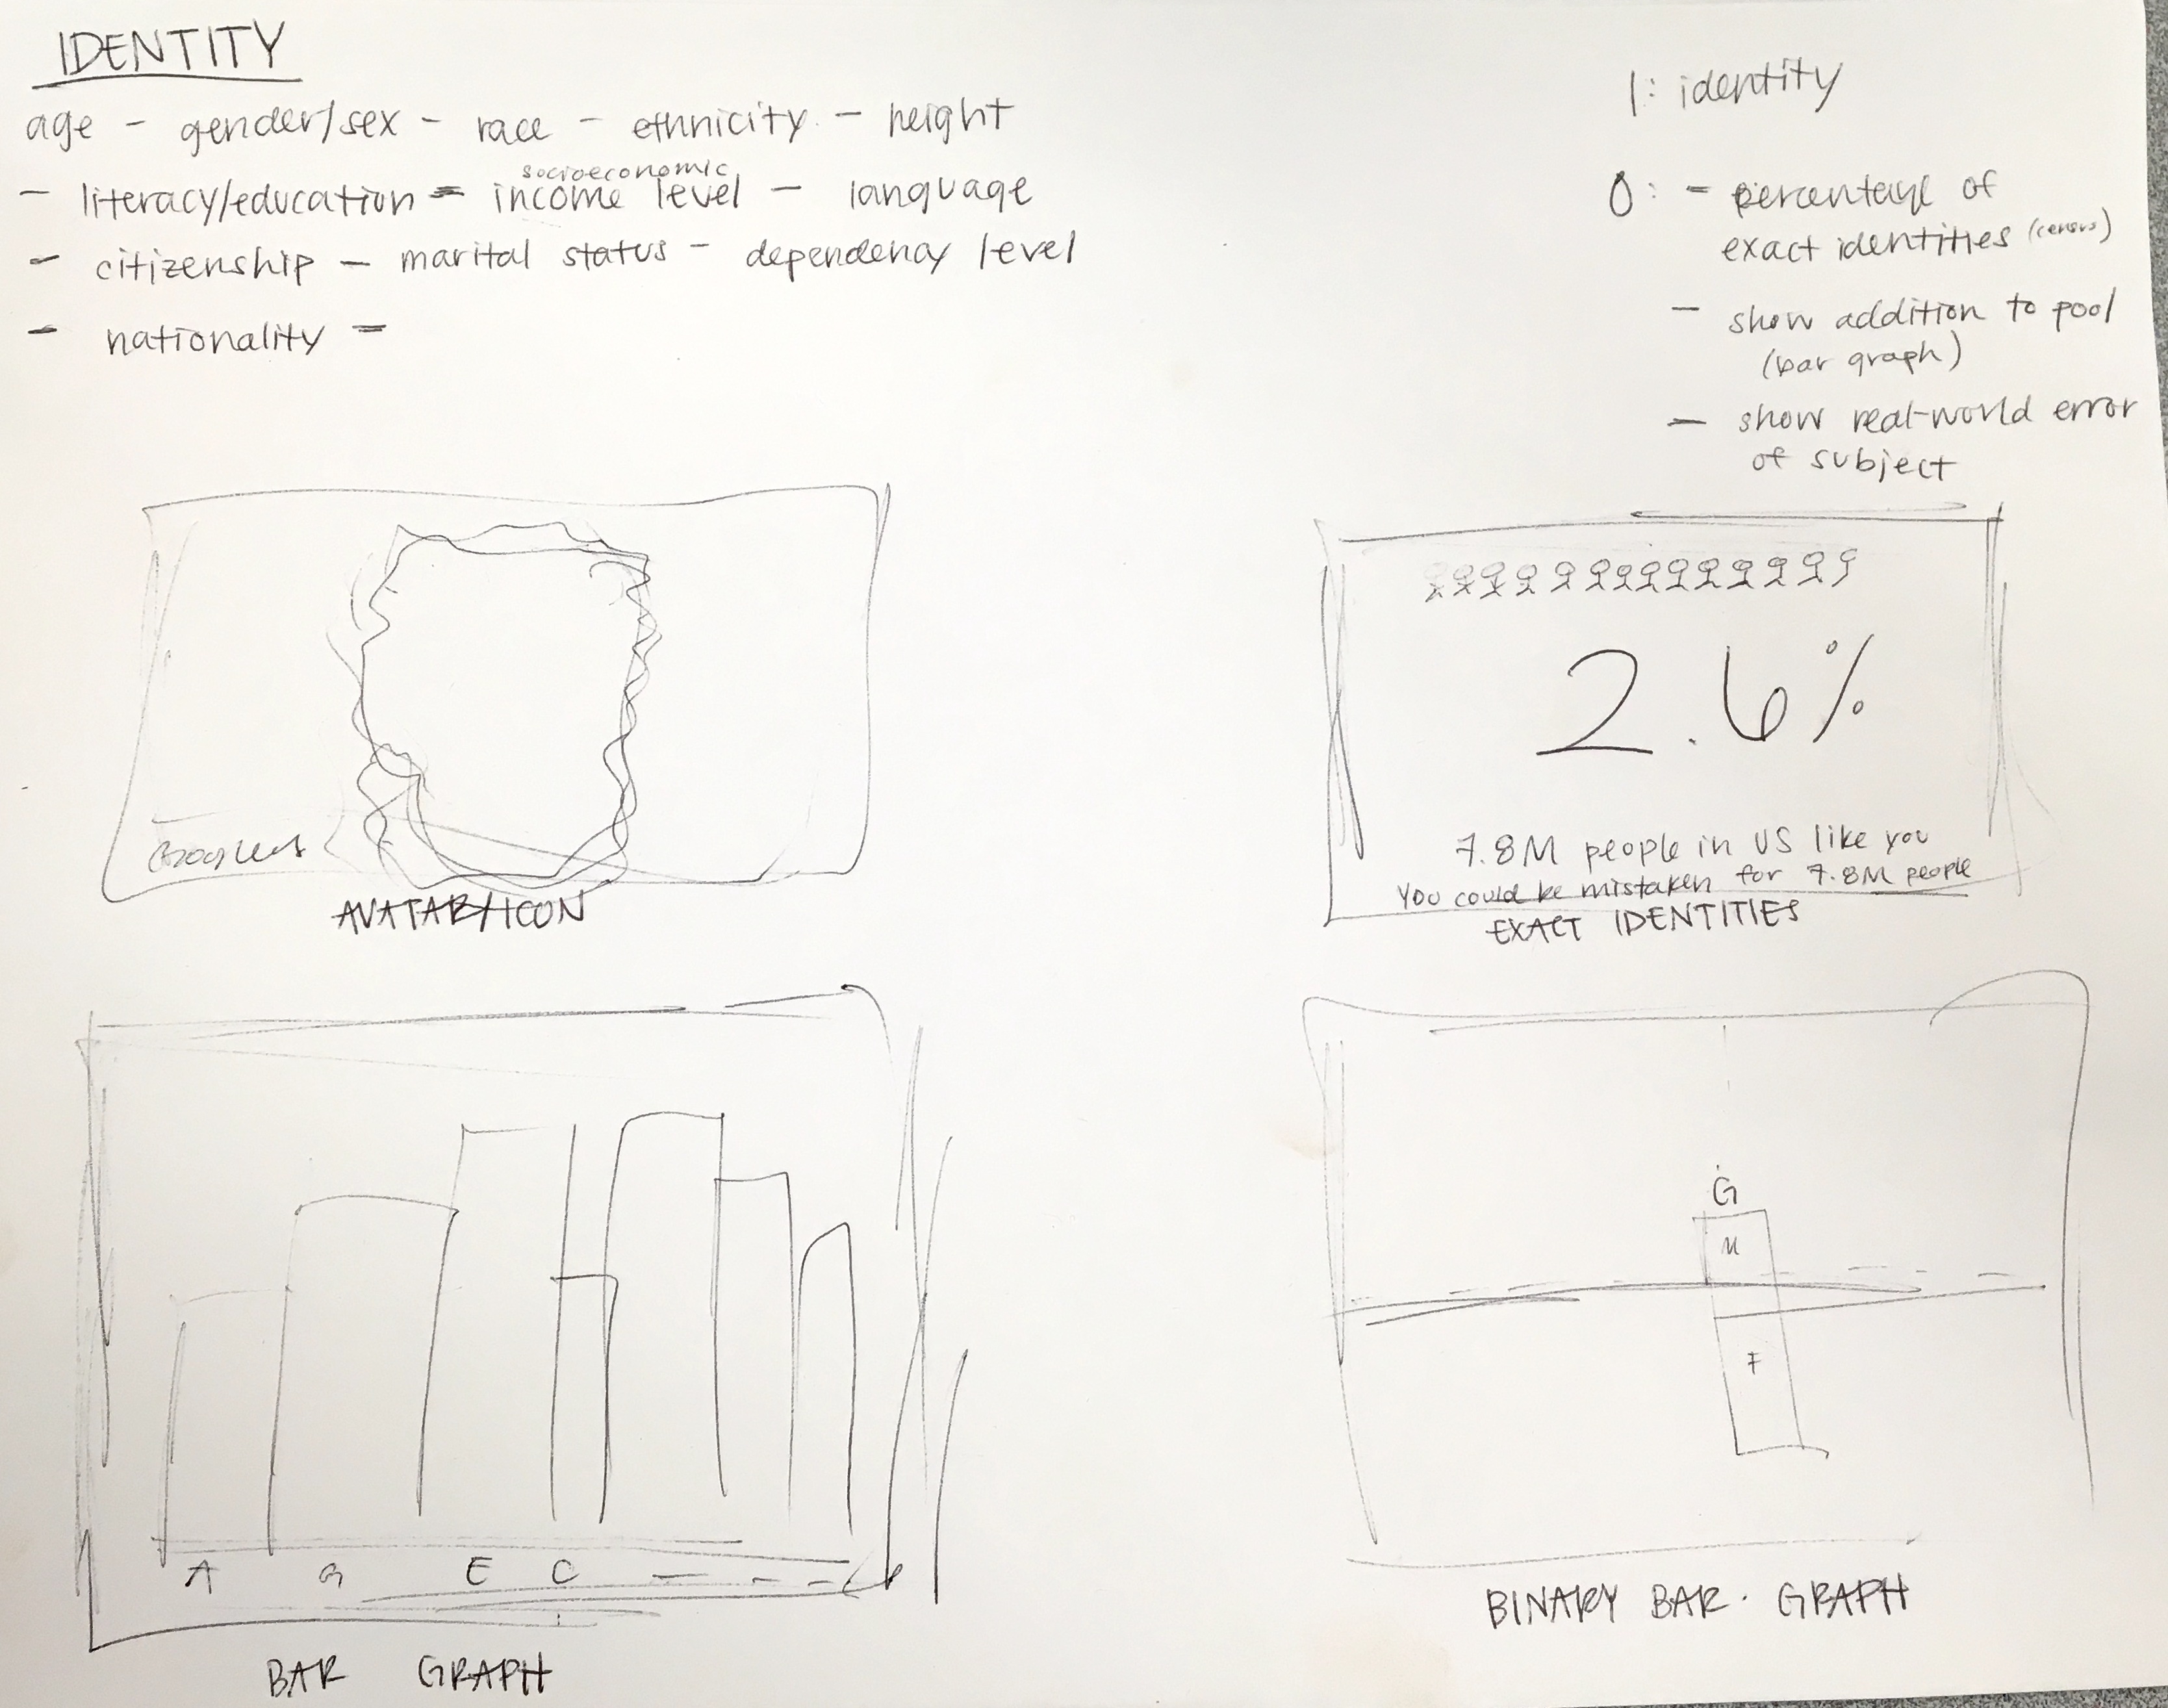 IDENTITY
age - gender/sex - race - ethnicity - height
socioeconomic
- literacy/education - income level - language
- citizenship - marital status - dependency level
- nationality -
1: identity
0: - percentage of
exact identities (census)
- show addition to pool
(bar graph)
- show real-world error
of subject
AVATAR/ICON
2.6%
7.8M people in US like you
You could be mistaken for 7.8M people
EXACT IDENTITIES
A G E C - - -
BAR GRAPH
G
M
F
BINARY BAR. GRAPH